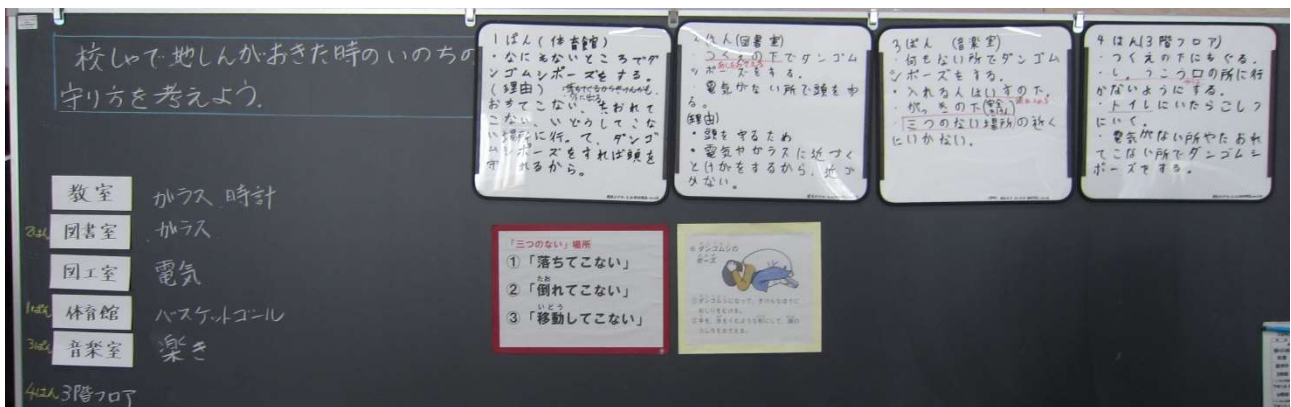 校しゃで地しんがおきた時のいのちの
守り方を考えよう.
教室 ガラス 時計
2はん 図書室 ガラス
図工室 電気
1ぱん 体育館 バスケットゴール
3ぱん 音楽室 楽き
4はん 3階フロア
1ぱん(体育館)
・なにもないところでダ
ンゴムシポーズをする。
(理由)
おちてこない、たおれて
こない、いどうしてこな
い場所に行って、ダンゴ
ムシポーズをすれば頭を
守れるから。
2はん(図書室)
・つくえの下でダンゴム
シポーズをする。
・電気がない所で頭を守
る。
(理由)
・頭を守るため
・電気やガラスに近づく
とけがをするから、近づ
かない。
3ぱん (音楽室)
・何もない所でダンゴム
シポーズをする。
・入れる人はいすの下。
・がっきの下
・三つのない場所の近く
にいかない。
4はん(3階フロア)
・つくえの下にもぐる。
・しょうこう口の所に行
かないようにする。
・トイレにいたらこしつ
にいく。
・電気がない所やたおれ
てこない所でダンゴムシ
ポーズをする。
「三つのない」場所
①「落ちてこない」
②「倒れてこない」
たお
③「移動してこない」
いどう
ダンゴムシの
ポーズ